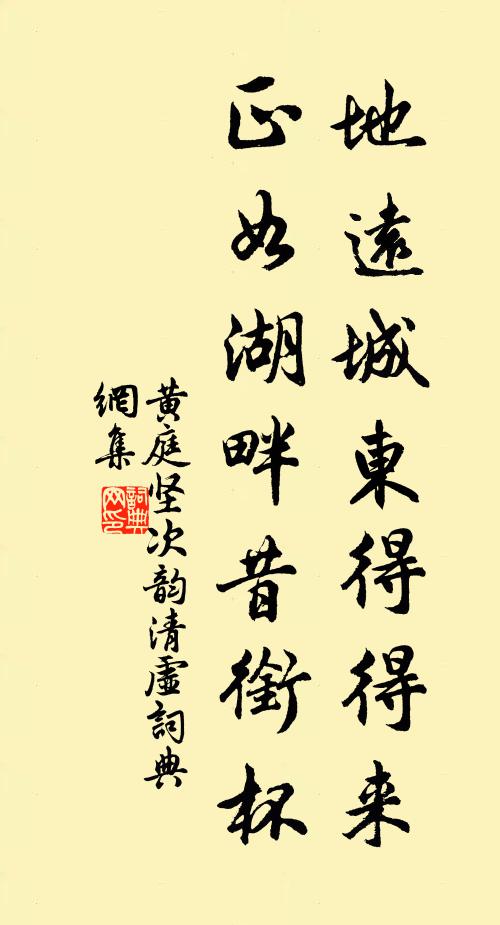 地遠城東得得来
正如湖畔昔銜杯
黄庭坚次韵清虛詞典
網集
詞典
网印